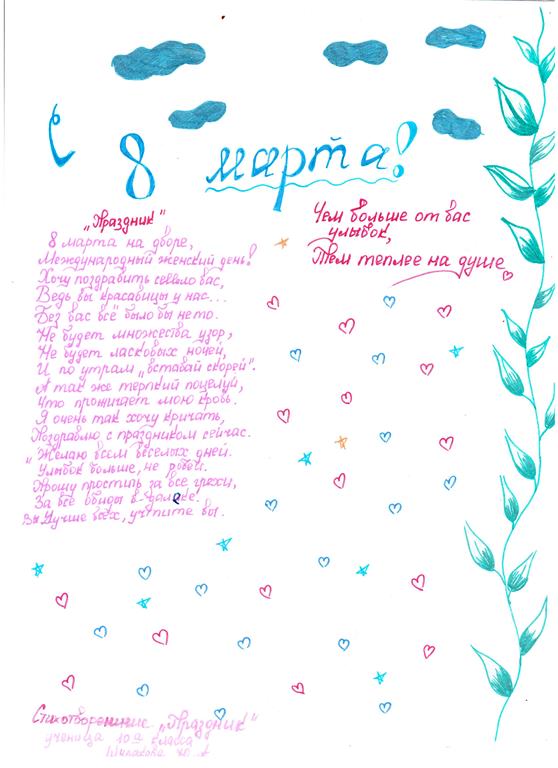 С 8 марта!
„Праздник"
8 марта на дворе,
Международный женский день!
Хочу поздравить смело вас,
Ведь вы красавицы у нас...
Без вас всё было бы не то.
Не будет множества узор,
Не будет ласковых ночей,
И по утрам „вставай скорей".
А так же терпкий поцелуй,
Что прожигает мою кровь.
Я очень так хочу кричать,
Поздравлю с праздником сейчас.
„Желаю всем весёлых дней.
Улыбок больше, не робей.
Прошу простить за все грехи,
За все обиды в далеке.
Вы Лучше всех, учтите вы.
Чем больше от вас
улыбок,
Тем теплее на душе
Стихотворение „Праздник"
ученица 10 а класса